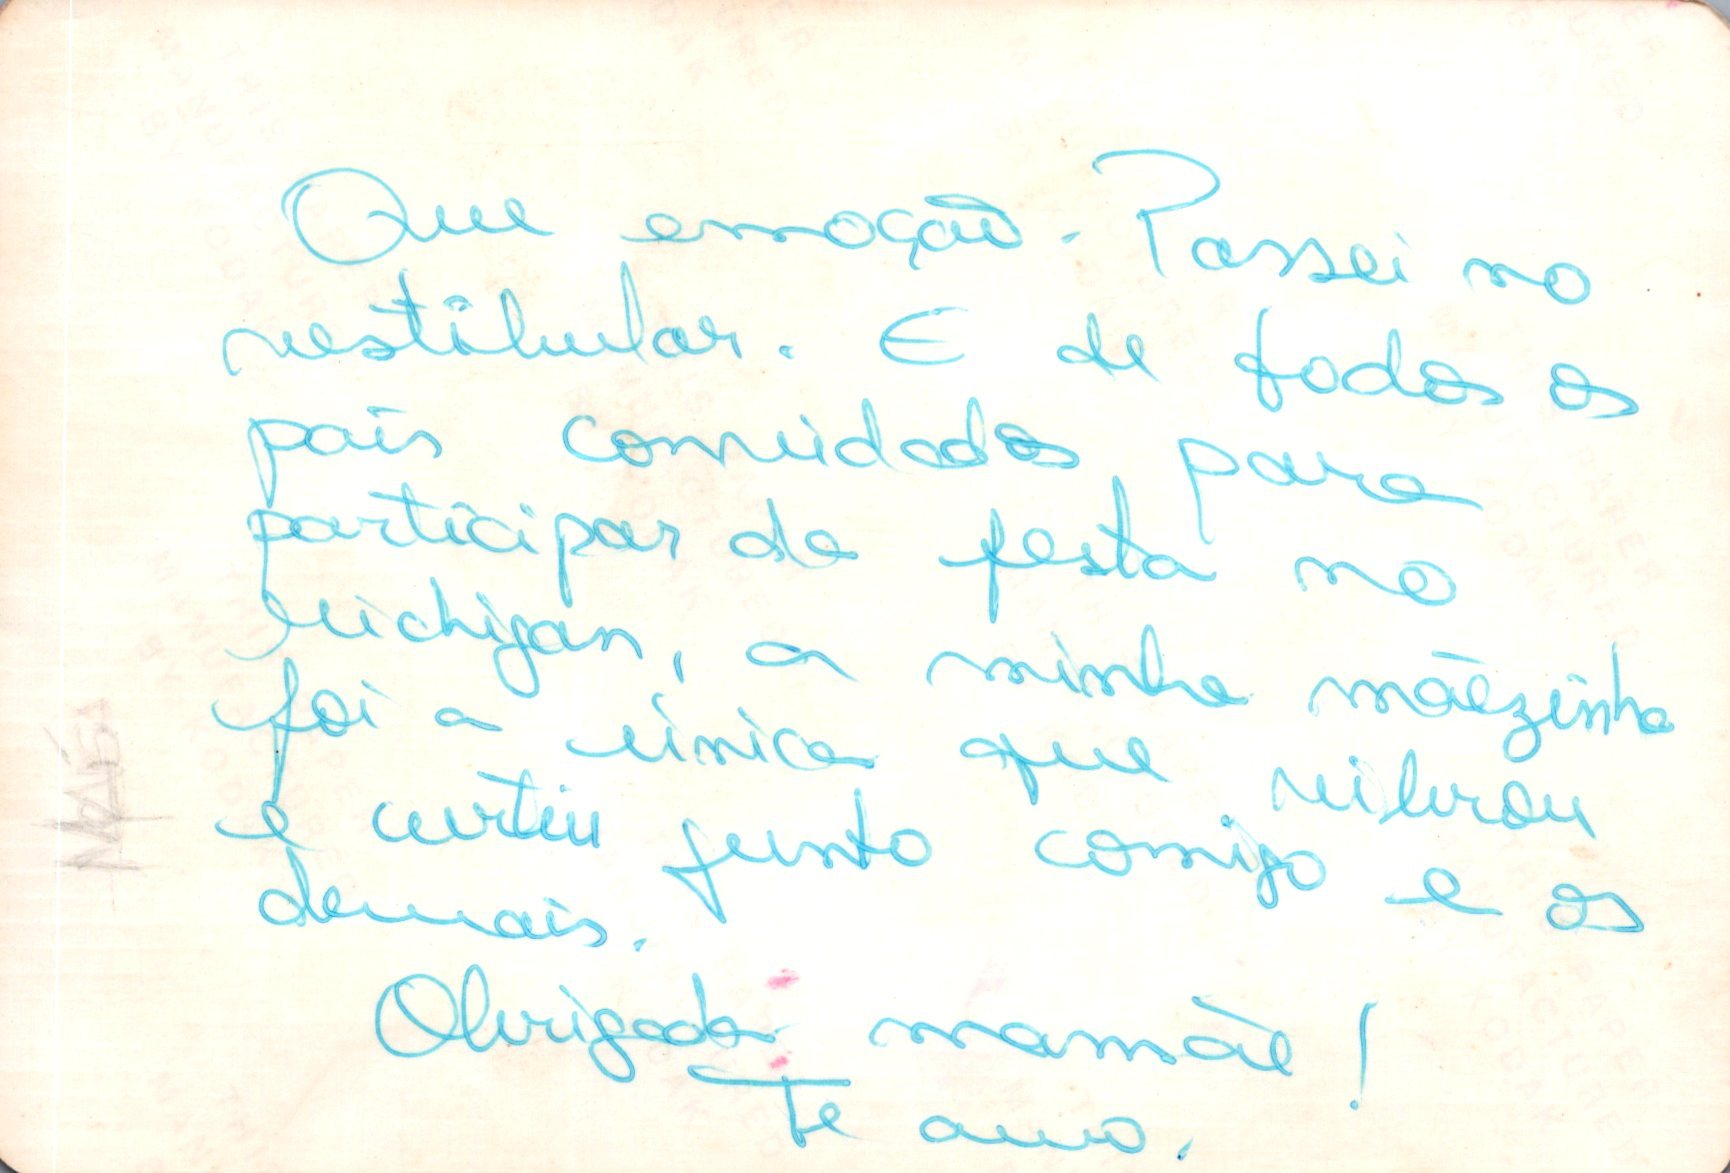 Que emoção. Passei no
vestibular. E de todos os
pais convidados para
participar da festa no
Michigan, a minha mãezinha
foi a única que vibrou
e curtiu junto comigo e os
demais.
Obrigada mamãe!
Te amo.